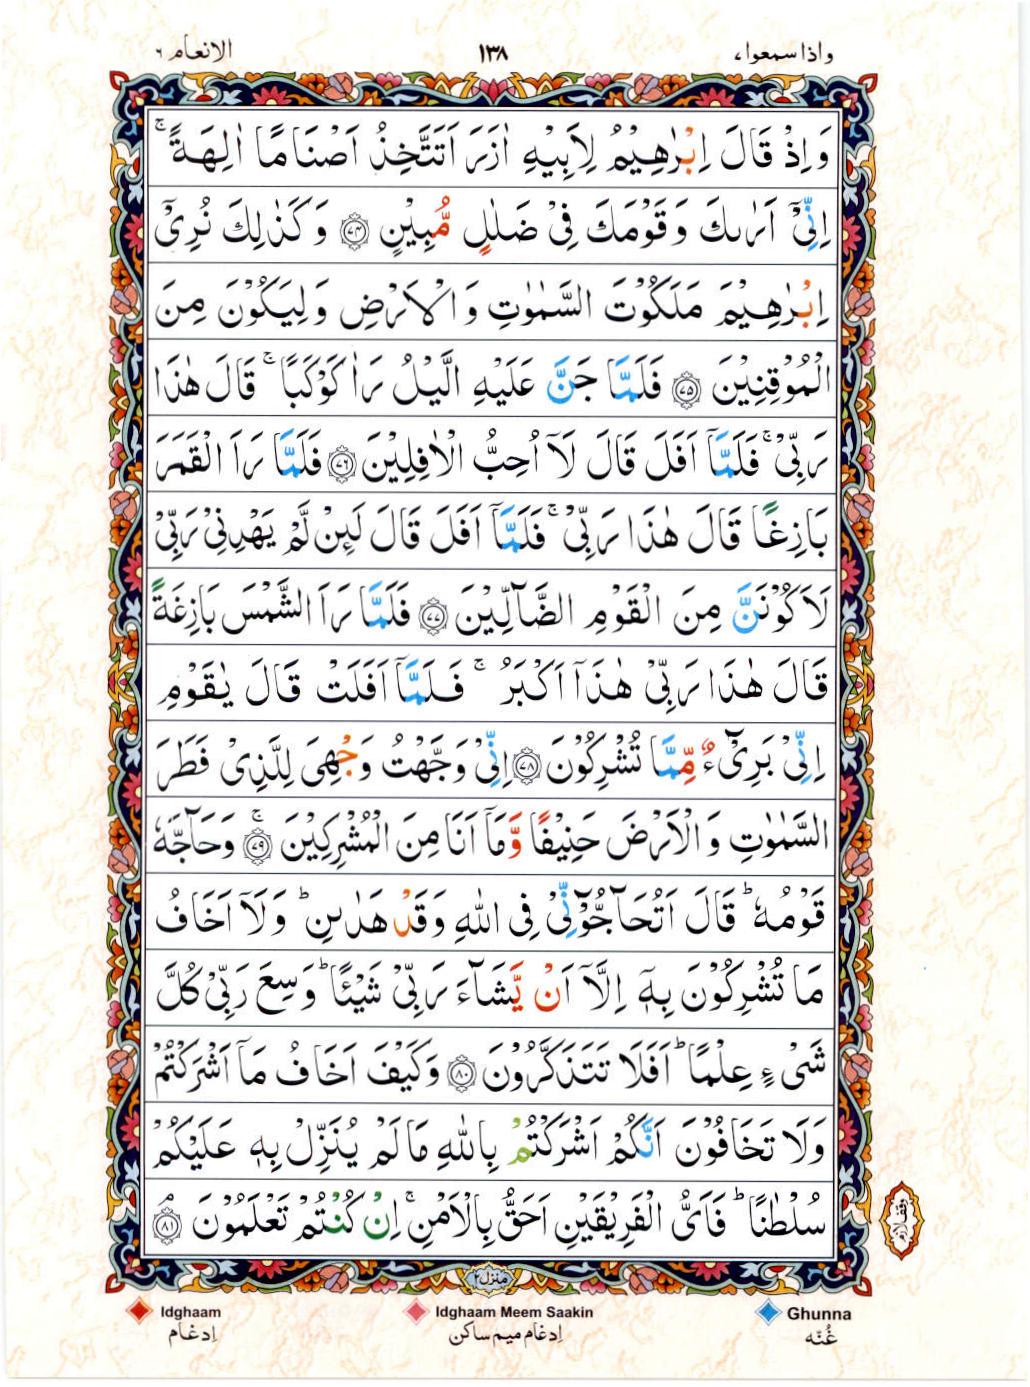 واذا سمعوا ٧
١٣٨
الانعام ٦
وَاِذْ قَالَ اِبْرٰهِيْمُ لِاَبِيْهِ اٰزَرَ اَتَتَّخِذُ اَصْنَامًا اٰلِهَةً ۚ
اِنِّىْۤ اَرٰىكَ وَقَوْمَكَ فِىْ ضَلٰلٍ مُّبِيْنٍ ﴿٧٤﴾ وَكَذٰلِكَ نُرِىْۤ
اِبْرٰهِيْمَ مَلَكُوْتَ السَّمٰوٰتِ وَالْاَرْضِ وَلِيَكُوْنَ مِنَ
الْمُوْقِنِيْنَ ﴿٧٥﴾ فَلَمَّا جَنَّ عَلَيْهِ الَّيْلُ رَاٰ كَوْكَبًا ۚ قَالَ هٰذَا
رَبِّىْ ۚ فَلَمَّاۤ اَفَلَ قَالَ لَاۤ اُحِبُّ الْاٰفِلِيْنَ ﴿٧٦﴾ فَلَمَّا رَاَ الْقَمَرَ
بَازِغًا قَالَ هٰذَا رَبِّىْ ۚ فَلَمَّاۤ اَفَلَ قَالَ لَئِنْ لَّمْ يَهْدِنِىْ رَبِّىْ
لَاَكُوْنَنَّ مِنَ الْقَوْمِ الضَّآلِّيْنَ ﴿٧٧﴾ فَلَمَّا رَاَ الشَّمْسَ بَازِغَةً
قَالَ هٰذَا رَبِّىْ هٰذَاۤ اَكْبَرُ ۚ فَلَمَّاۤ اَفَلَتْ قَالَ يٰقَوْمِ
اِنِّىْ بَرِىْٓءٌ مِّمَّا تُشْرِكُوْنَ ﴿٧٨﴾ اِنِّىْ وَجَّهْتُ وَجْهِىَ لِلَّذِىْ فَطَرَ
السَّمٰوٰتِ وَالْاَرْضَ حَنِيْفًا وَّمَاۤ اَنَا مِنَ الْمُشْرِكِيْنَ ﴿٧٩﴾ ۚ وَحَآجَّهٗ
قَوْمُهٗ ؕ قَالَ اَتُحَآجُّوْٓنِّىْ فِى اللّٰهِ وَقَدْ هَدٰىنِ ؕ وَلَاۤ اَخَافُ
مَا تُشْرِكُوْنَ بِهٖۤ اِلَّاۤ اَنْ يَّشَآءَ رَبِّىْ شَيْـًٔا ؕ وَسِعَ رَبِّىْ كُلَّ
شَىْءٍ عِلْمًا ؕ اَفَلَا تَتَذَكَّرُوْنَ ﴿٨٠﴾ وَكَيْفَ اَخَافُ مَاۤ اَشْرَكْتُمْ
وَلَا تَخَافُوْنَ اَنَّكُمْ اَشْرَكْتُمْ بِاللّٰهِ مَا لَمْ يُنَزِّلْ بِهٖ عَلَيْكُمْ
سُلْطٰنًا ؕ فَاَىُّ الْفَرِيْقَيْنِ اَحَقُّ بِالْاَمْنِ ۚ اِنْ كُنْتُمْ تَعْلَمُوْنَ ۘ ﴿٨١﴾
وقف لازم
منزل ٢
Idghaam
Idghaam Meem Saakin
Ghunna
اِدغام
اِدغام میم ساکن
غُنّه